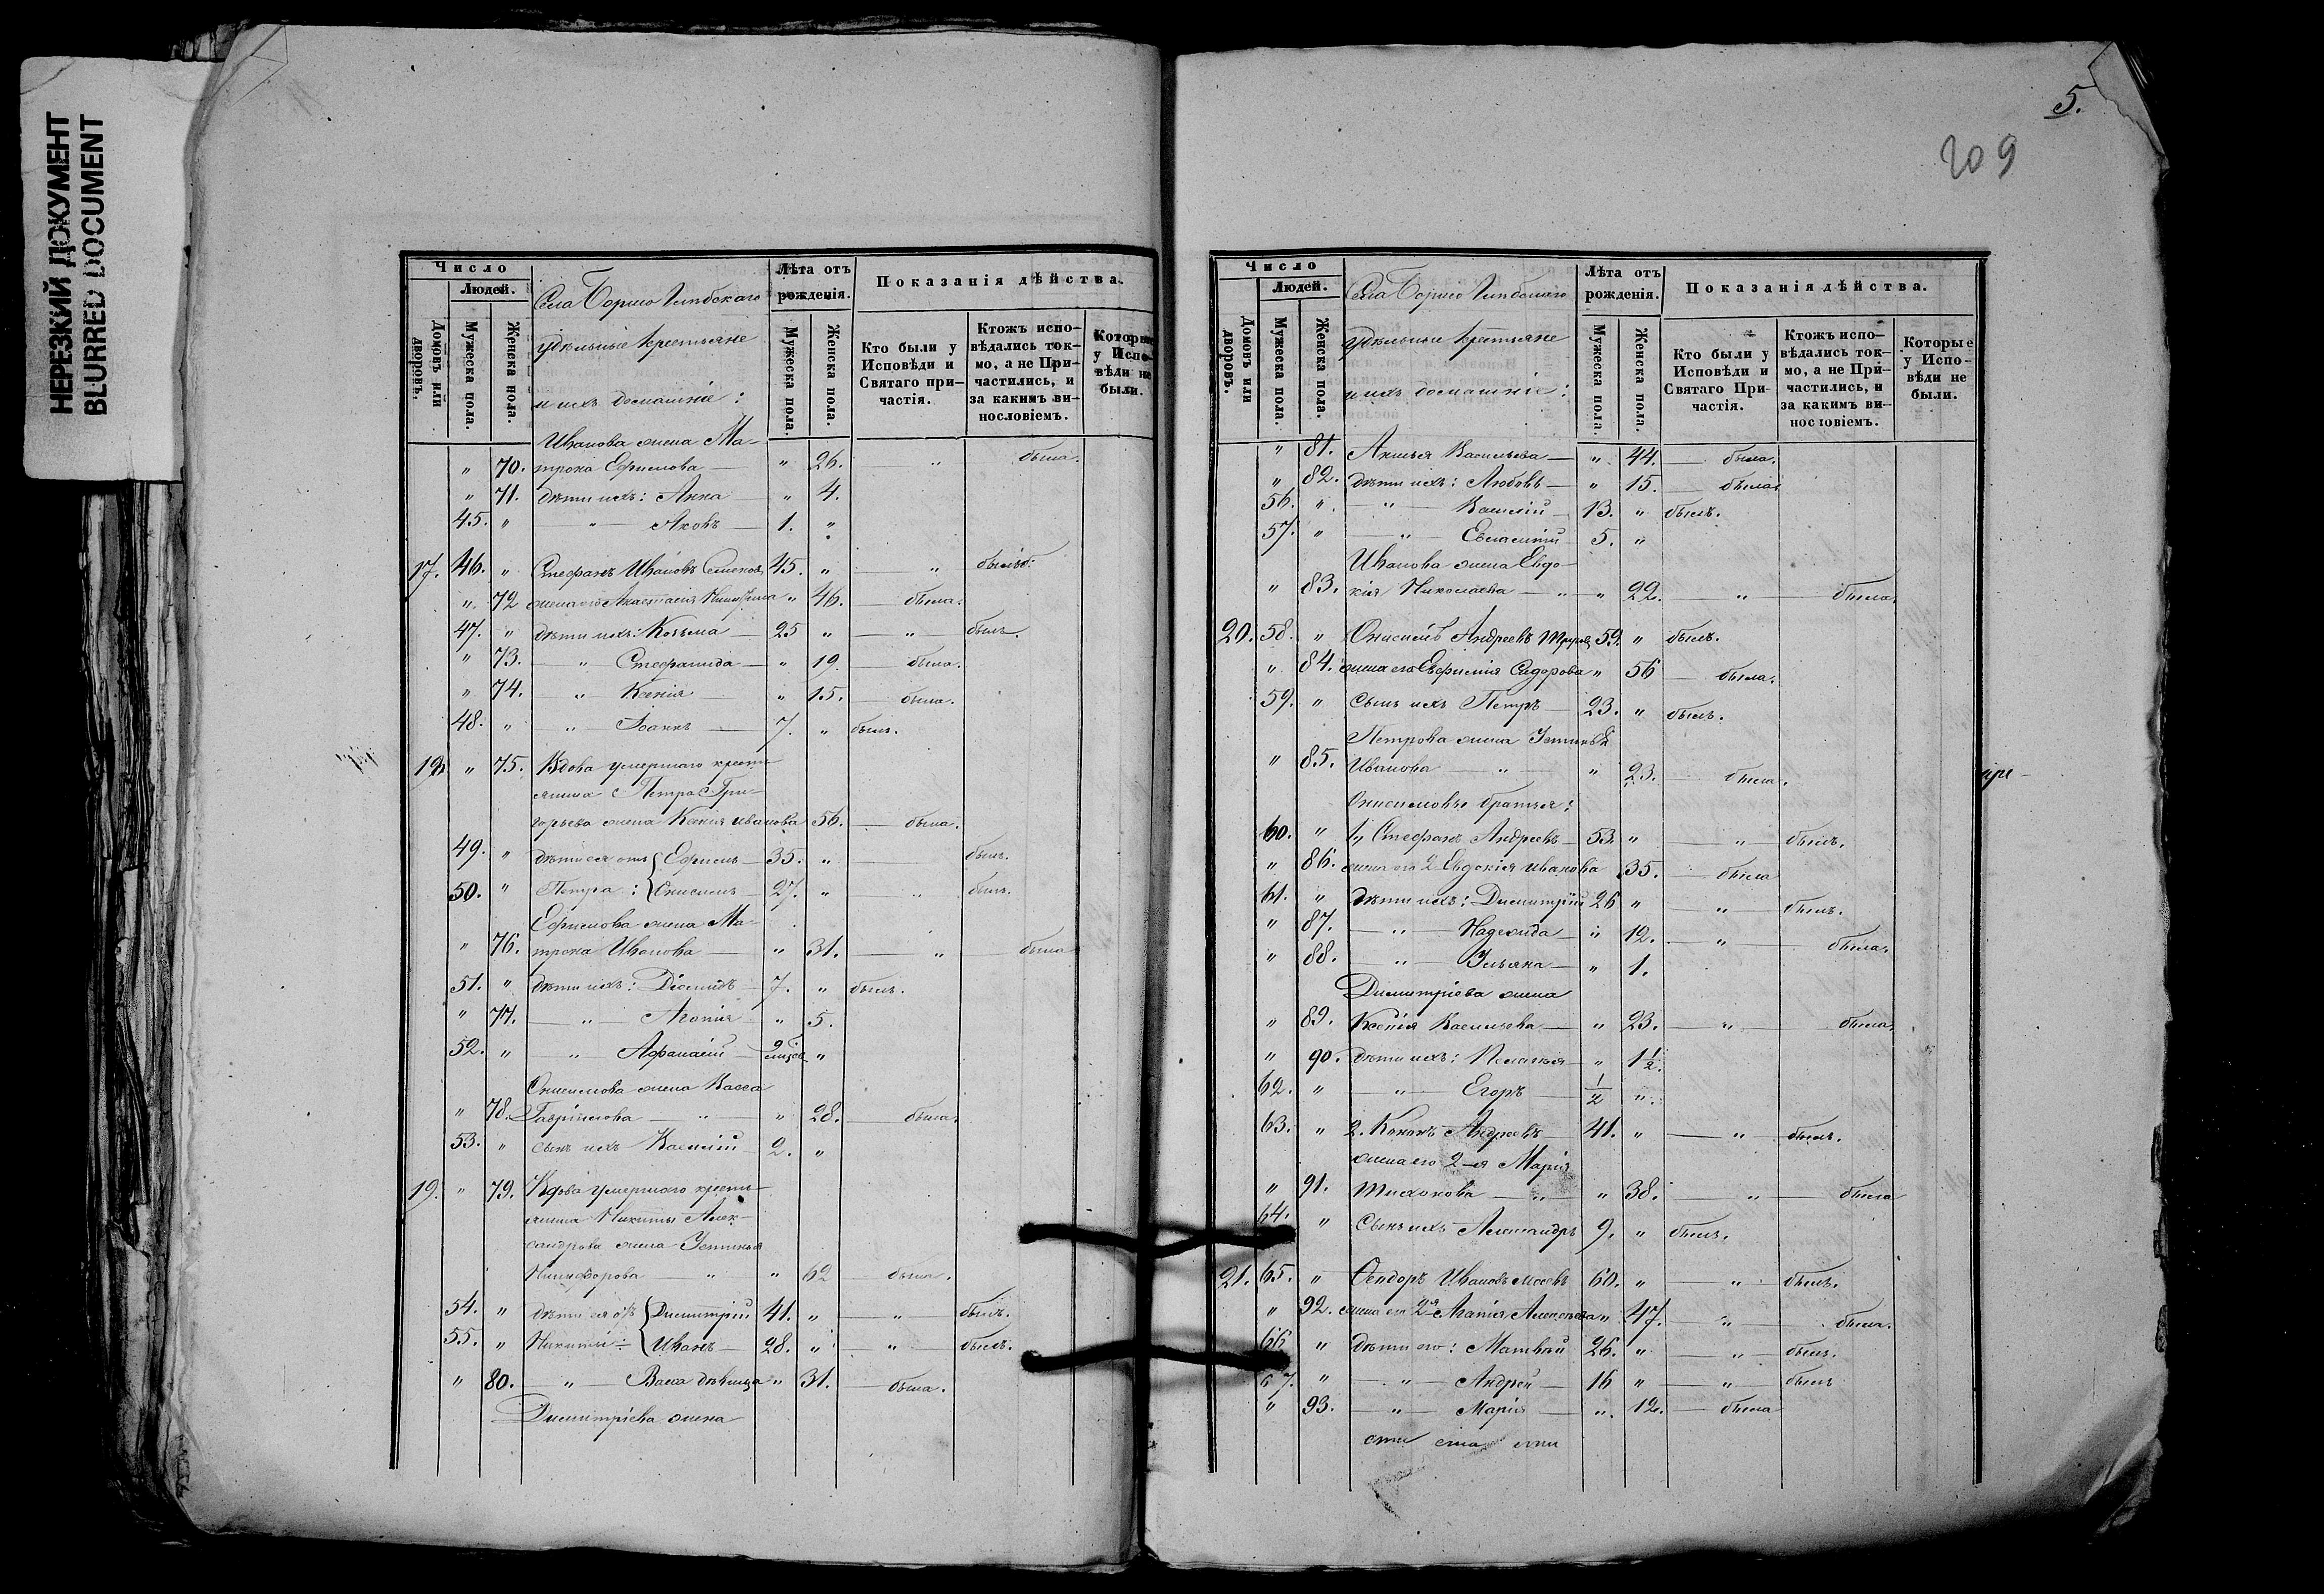 НЕРЕЗКИЙ ДОКУМЕНТ
BLURRED DOCUMENT
Число
Людей.
Домовъ или дворовъ.
Мужеска пола.
Женска пола.
Села
удѣльные крестьяне
и ихъ домашніе:
Лѣта отъ рожденія.
Мужеска пола.
Женска пола.
Показанія дѣйства.
Кто были у Исповѣди и Святаго причастія.
Ктожъ исповѣдались токмо, а не Причастились, и за какимъ винословіемъ.
Которые у Исповѣди не были.
Иванова жена Ма-
" 70. трона Ефимова — " 26. " была.
" 71. дѣти ихъ: Анна — " 4.
45. " — " — Яковъ — 1. "
17. 46. " Стефанъ Ивановъ 45. " — "
" 72 жена его Анастасія " 46. — была.
47. " дѣти ихъ: Козьма — 25 " — " — былъ.
" 73. — " Стефанида — " 19. — была.
" 74. — " Ксенія — " 15. — была.
48. " — " Іоаннъ — 7. " былъ.
" 75. Вдова умершаго кресть-
янина Петра Гри-
горьева жена Ксенія Иванова 56. — была.
49. " дѣти ея отъ { Ефимъ — 35. " — былъ.
50. " Петра: { Онисимъ — 27. " " былъ.
Ефимова жена Ма-
" 76. трона Иванова — " 31. — " была
51. " дѣти ихъ: Діомидъ — 7. " былъ.
" 77. — " — Агапія — " 5.
52. " — " — Афанасій — "
Онисимова жена Васса
" 78. Гавріилова — " — " 28. — была.
53. " сынъ ихъ Василій — 2. "
19. " 79. Вдова умершаго кресть-
янина Никиты Алек-
сандрова жена Устинья
Никифорова — " — " 62 — была.
54. " дѣти ея отъ { Димитрій 41. " — " — былъ.
55. " Никиты: { Иванъ — 28. " — " — былъ.
" 80. — " — Васса дѣвица " 31. — была.
Димитріева жена
5.
209
Число
Людей.
Домовъ или дворовъ.
Мужеска пола.
Женска пола.
Села
удѣльные крестьяне
и ихъ домашніе:
Лѣта отъ рожденія.
Мужеска пола.
Женска пола.
Показанія дѣйства.
Кто были у Исповѣди и Святаго Причастія.
Ктожъ исповѣдались токмо, а не Причастились, и за какимъ винословіемъ.
Которые у Исповѣди не были.
" 81. Васильева — " 44. — была.
" 82. дѣти ихъ: Любовь — " 15. — была
56. " — " — Василій — 13. " былъ.
57. " — " — 5. "
Иванова жена Евдо-
" 83. кія Николаева — " " 22. — " — была.
20. 58. " Онисимъ Андреевъ 59. " былъ.
" 84. жена его Евфимія Сидорова " 56 — была.
59. " сынъ ихъ Петръ — 23. " былъ.
Петрова жена Устинья
" 85. Иванова — " — " 23. — была.
Онисимовы братья:
60. " 1, Стефанъ Андреевъ — 53. " — " — былъ.
" 86. жена его 2 Евдокія Иванова 35. — была
61. " дѣти ихъ: Димитрій 26 " — " — былъ.
" 87. — " — Надежда — " 12. — " — была.
" 88. — " — Ульяна — " 1.
Димитріева жена
" 89. Ксенія Васильева — " 23. — " — была
" 90. дѣти ихъ: Пелагія — " 1½.
62. " — " — Егоръ — ½ "
63. " 2. Кононъ Андреевъ — 41. " — " — былъ.
жена его 2-я Марія
" 91. Тихонова — " — " 38. — " — была
64. " сынъ ихъ Александръ 9. " былъ.
21. 65. " Ѳеодоръ Ивановъ 60. " — " — былъ.
" 92. жена его 2я Агапія " 47. — " — была.
66 " дѣти его: Матвѣй 26. " — " — былъ.
67. " — " — Андрей — 16 " — " — былъ
" 93. — " — Марія — " 12. — была